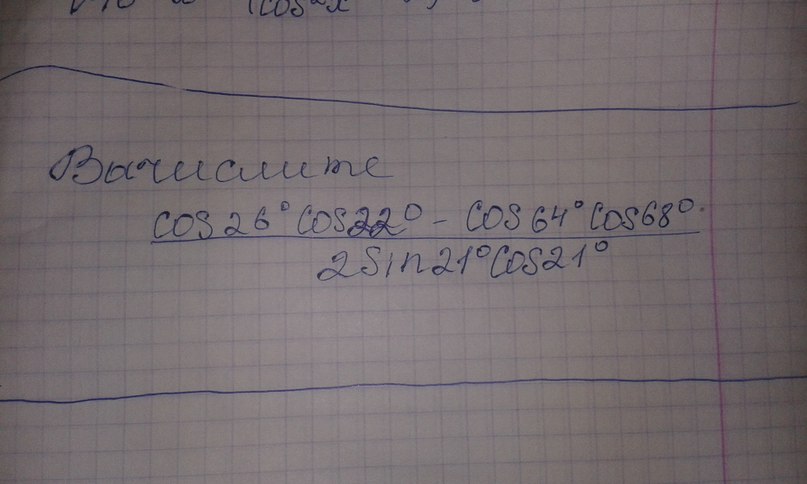 cos²x
Вычислите
cos26° cos22° - cos64° cos68°
2sin21° cos21°